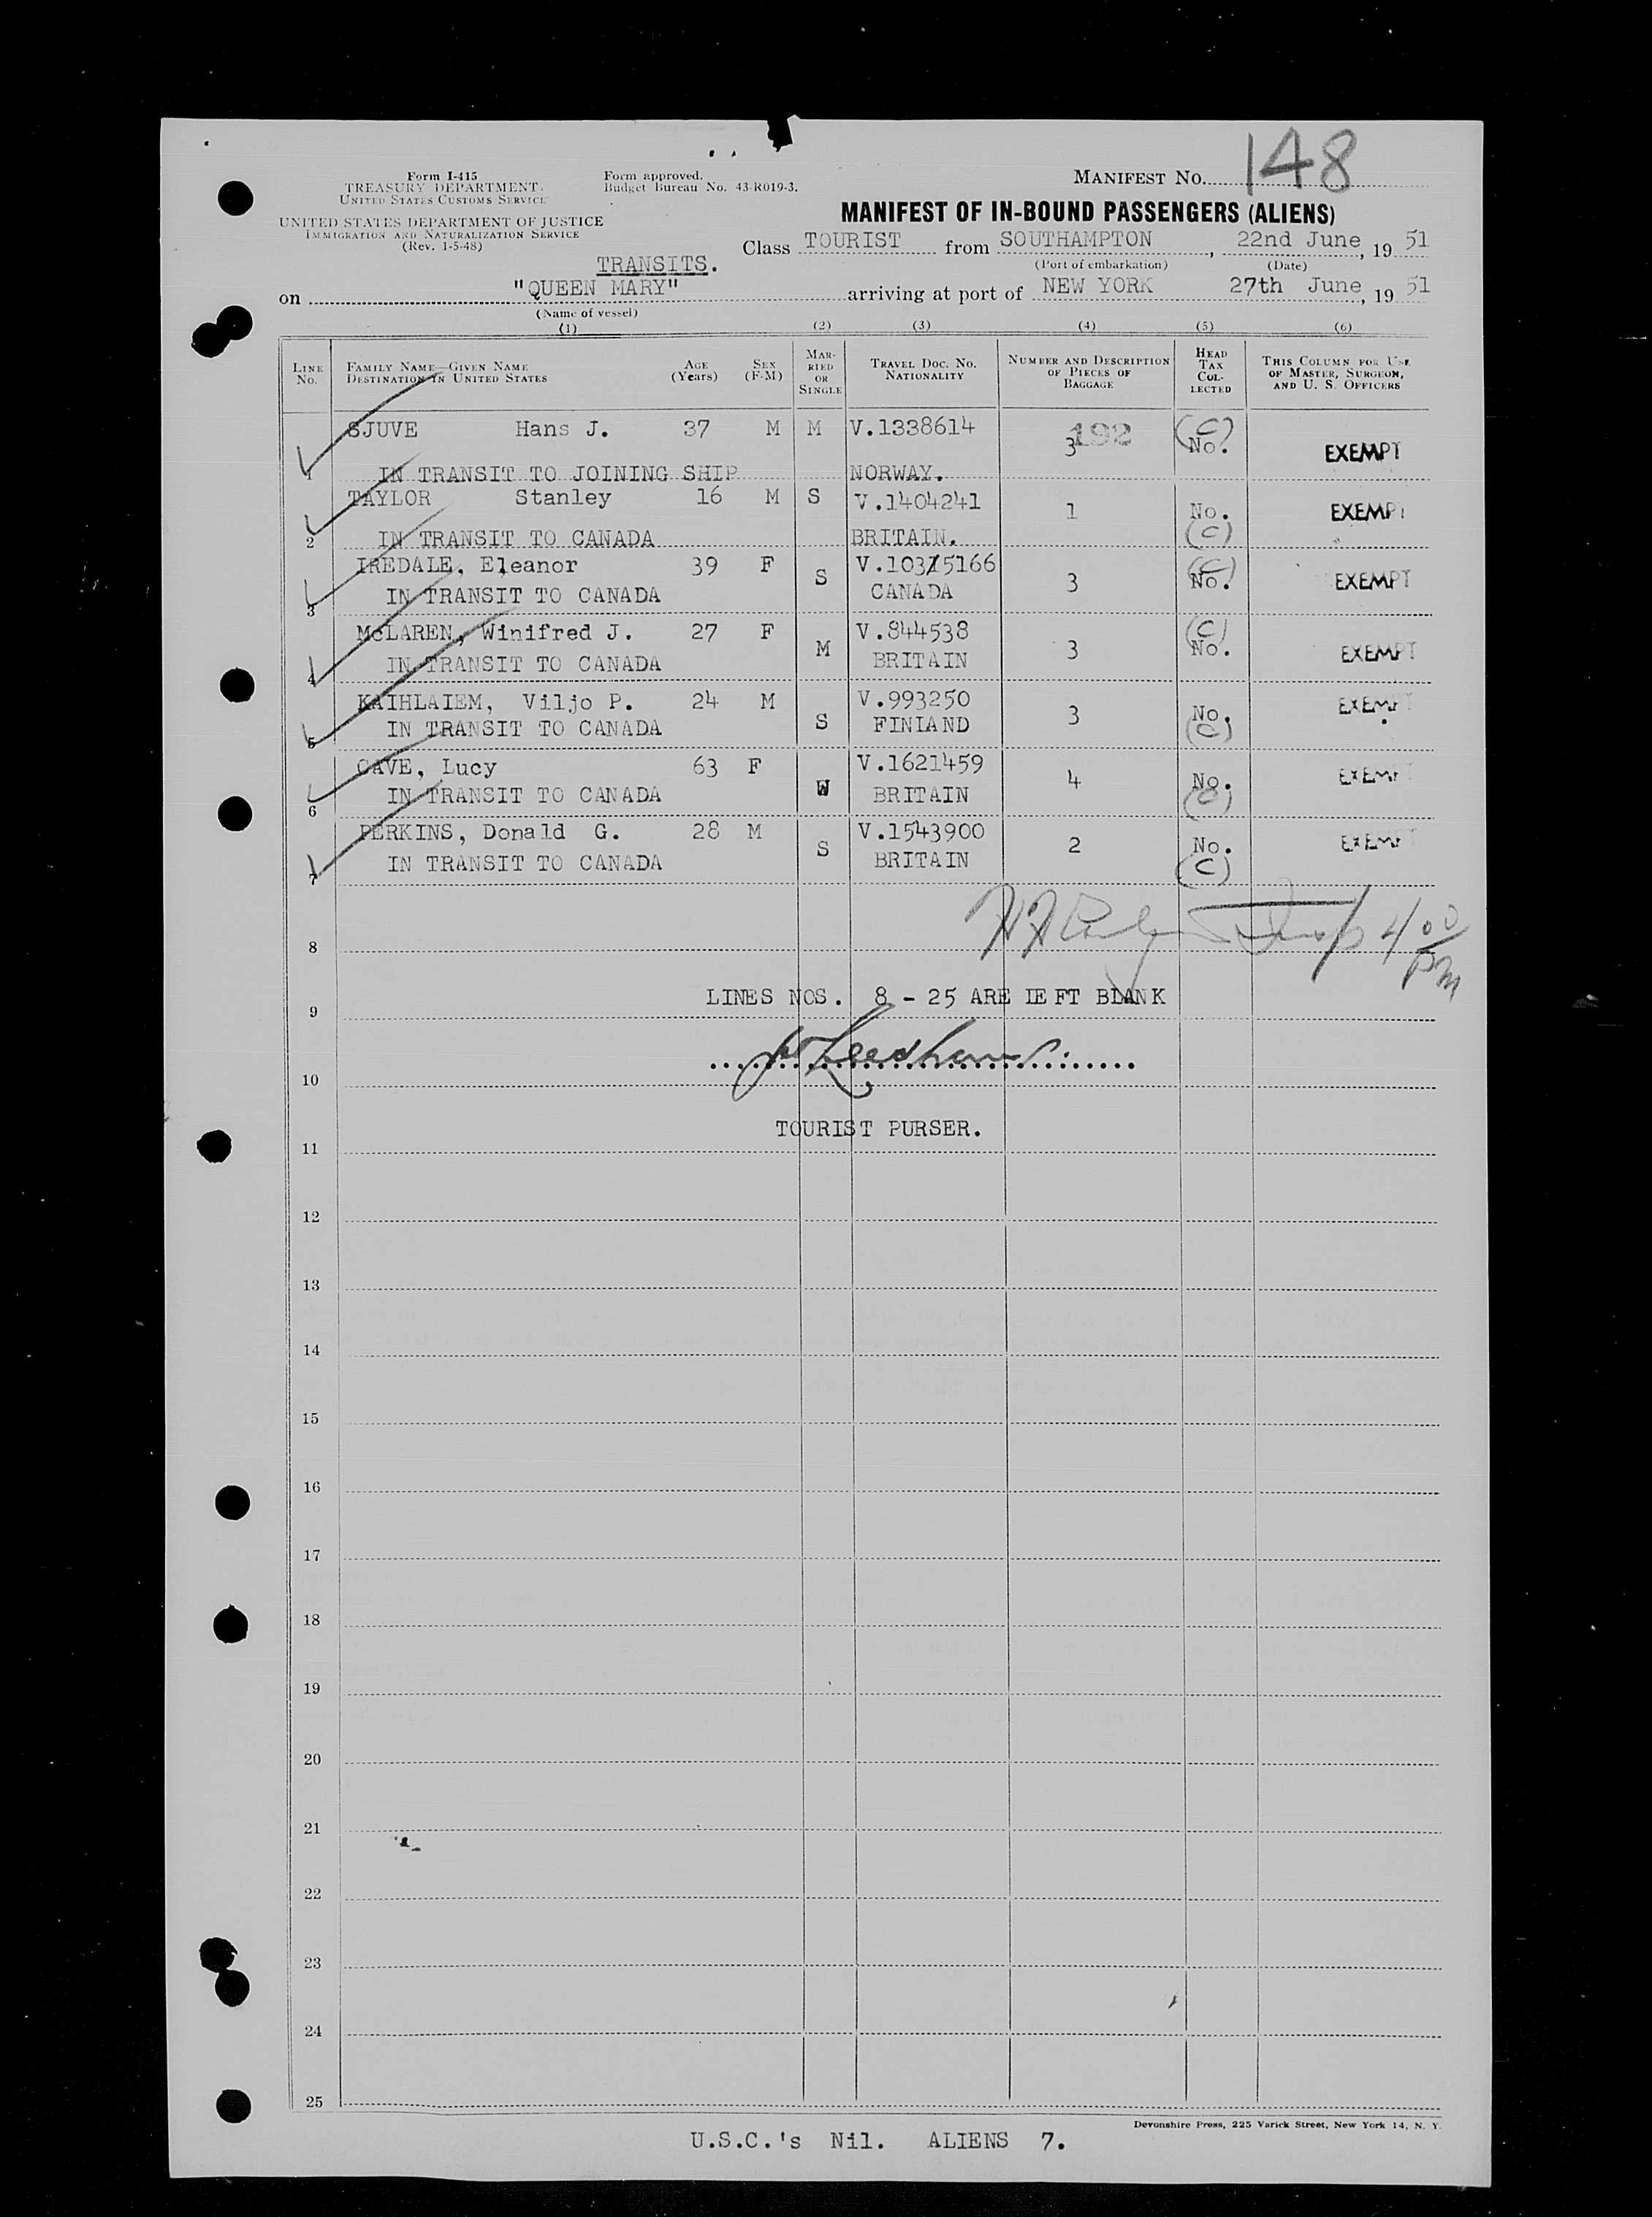 148
Form I-415
TREASURY DEPARTMENT
UNITED STATES CUSTOMS SERVICE
Form approved.
Budget Bureau No. 43-R019-3.
MANIFEST NO.
UNITED STATES DEPARTMENT OF JUSTICE
IMMIGRATION AND NATURALIZATION SERVICE
(Rev. 1-5-48)
MANIFEST OF IN-BOUND PASSENGERS (ALIENS)
Class TOURIST from SOUTHAMPTON, 22nd June, 19 51
(Port of embarkation) (Date)
TRANSITS.
on "QUEEN MARY" arriving at port of NEW YORK 27th June, 19 51
(Name of vessel)
(1) (2) (3) (4) (5) (6)
LINE No. FAMILY NAME—GIVEN NAME DESTINATION IN UNITED STATES AGE (Years) SEX (F-M) MARRIED OR SINGLE TRAVEL DOC. NO. NATIONALITY NUMBER AND DESCRIPTION OF PIECES OF BAGGAGE HEAD TAX COLLECTED THIS COLUMN FOR USE OF MASTER, SURGEON, AND U. S. OFFICERS
SJUVE Hans J. 37 M M V.1338614 3 192 (C) No. EXEMPT
1 IN TRANSIT TO JOINING SHIP NORWAY.
TAYLOR Stanley 16 M S V.1404241 1 No. (C) EXEMPT
2 IN TRANSIT TO CANADA BRITAIN.
IREDALE, Eleanor 39 F S V.10375166 3 (C) No. EXEMPT
3 IN TRANSIT TO CANADA CANADA
McLAREN, Winifred J. 27 F M V.844538 3 (C) No. EXEMPT
4 IN TRANSIT TO CANADA BRITAIN
KAIHLAIEM, Viljo P. 24 M S V.993250 3 No. (C) EXEMPT
5 IN TRANSIT TO CANADA FINLAND
CAVE, Lucy 63 F W V.1621459 4 No. (C) EXEMPT
6 IN TRANSIT TO CANADA BRITAIN
PERKINS, Donald G. 28 M S V.1543900 2 No. (C) EXEMPT
7 IN TRANSIT TO CANADA BRITAIN
8 4 00 PM
LINES NOS. 8 - 25 ARE LEFT BLANK
9
10
TOURIST PURSER.
11
12
13
14
15
16
17
18
19
20
21
22
23
24
25
Devonshire Press, 225 Varick Street, New York 14, N. Y.
U.S.C.'s Nil. ALIENS 7.